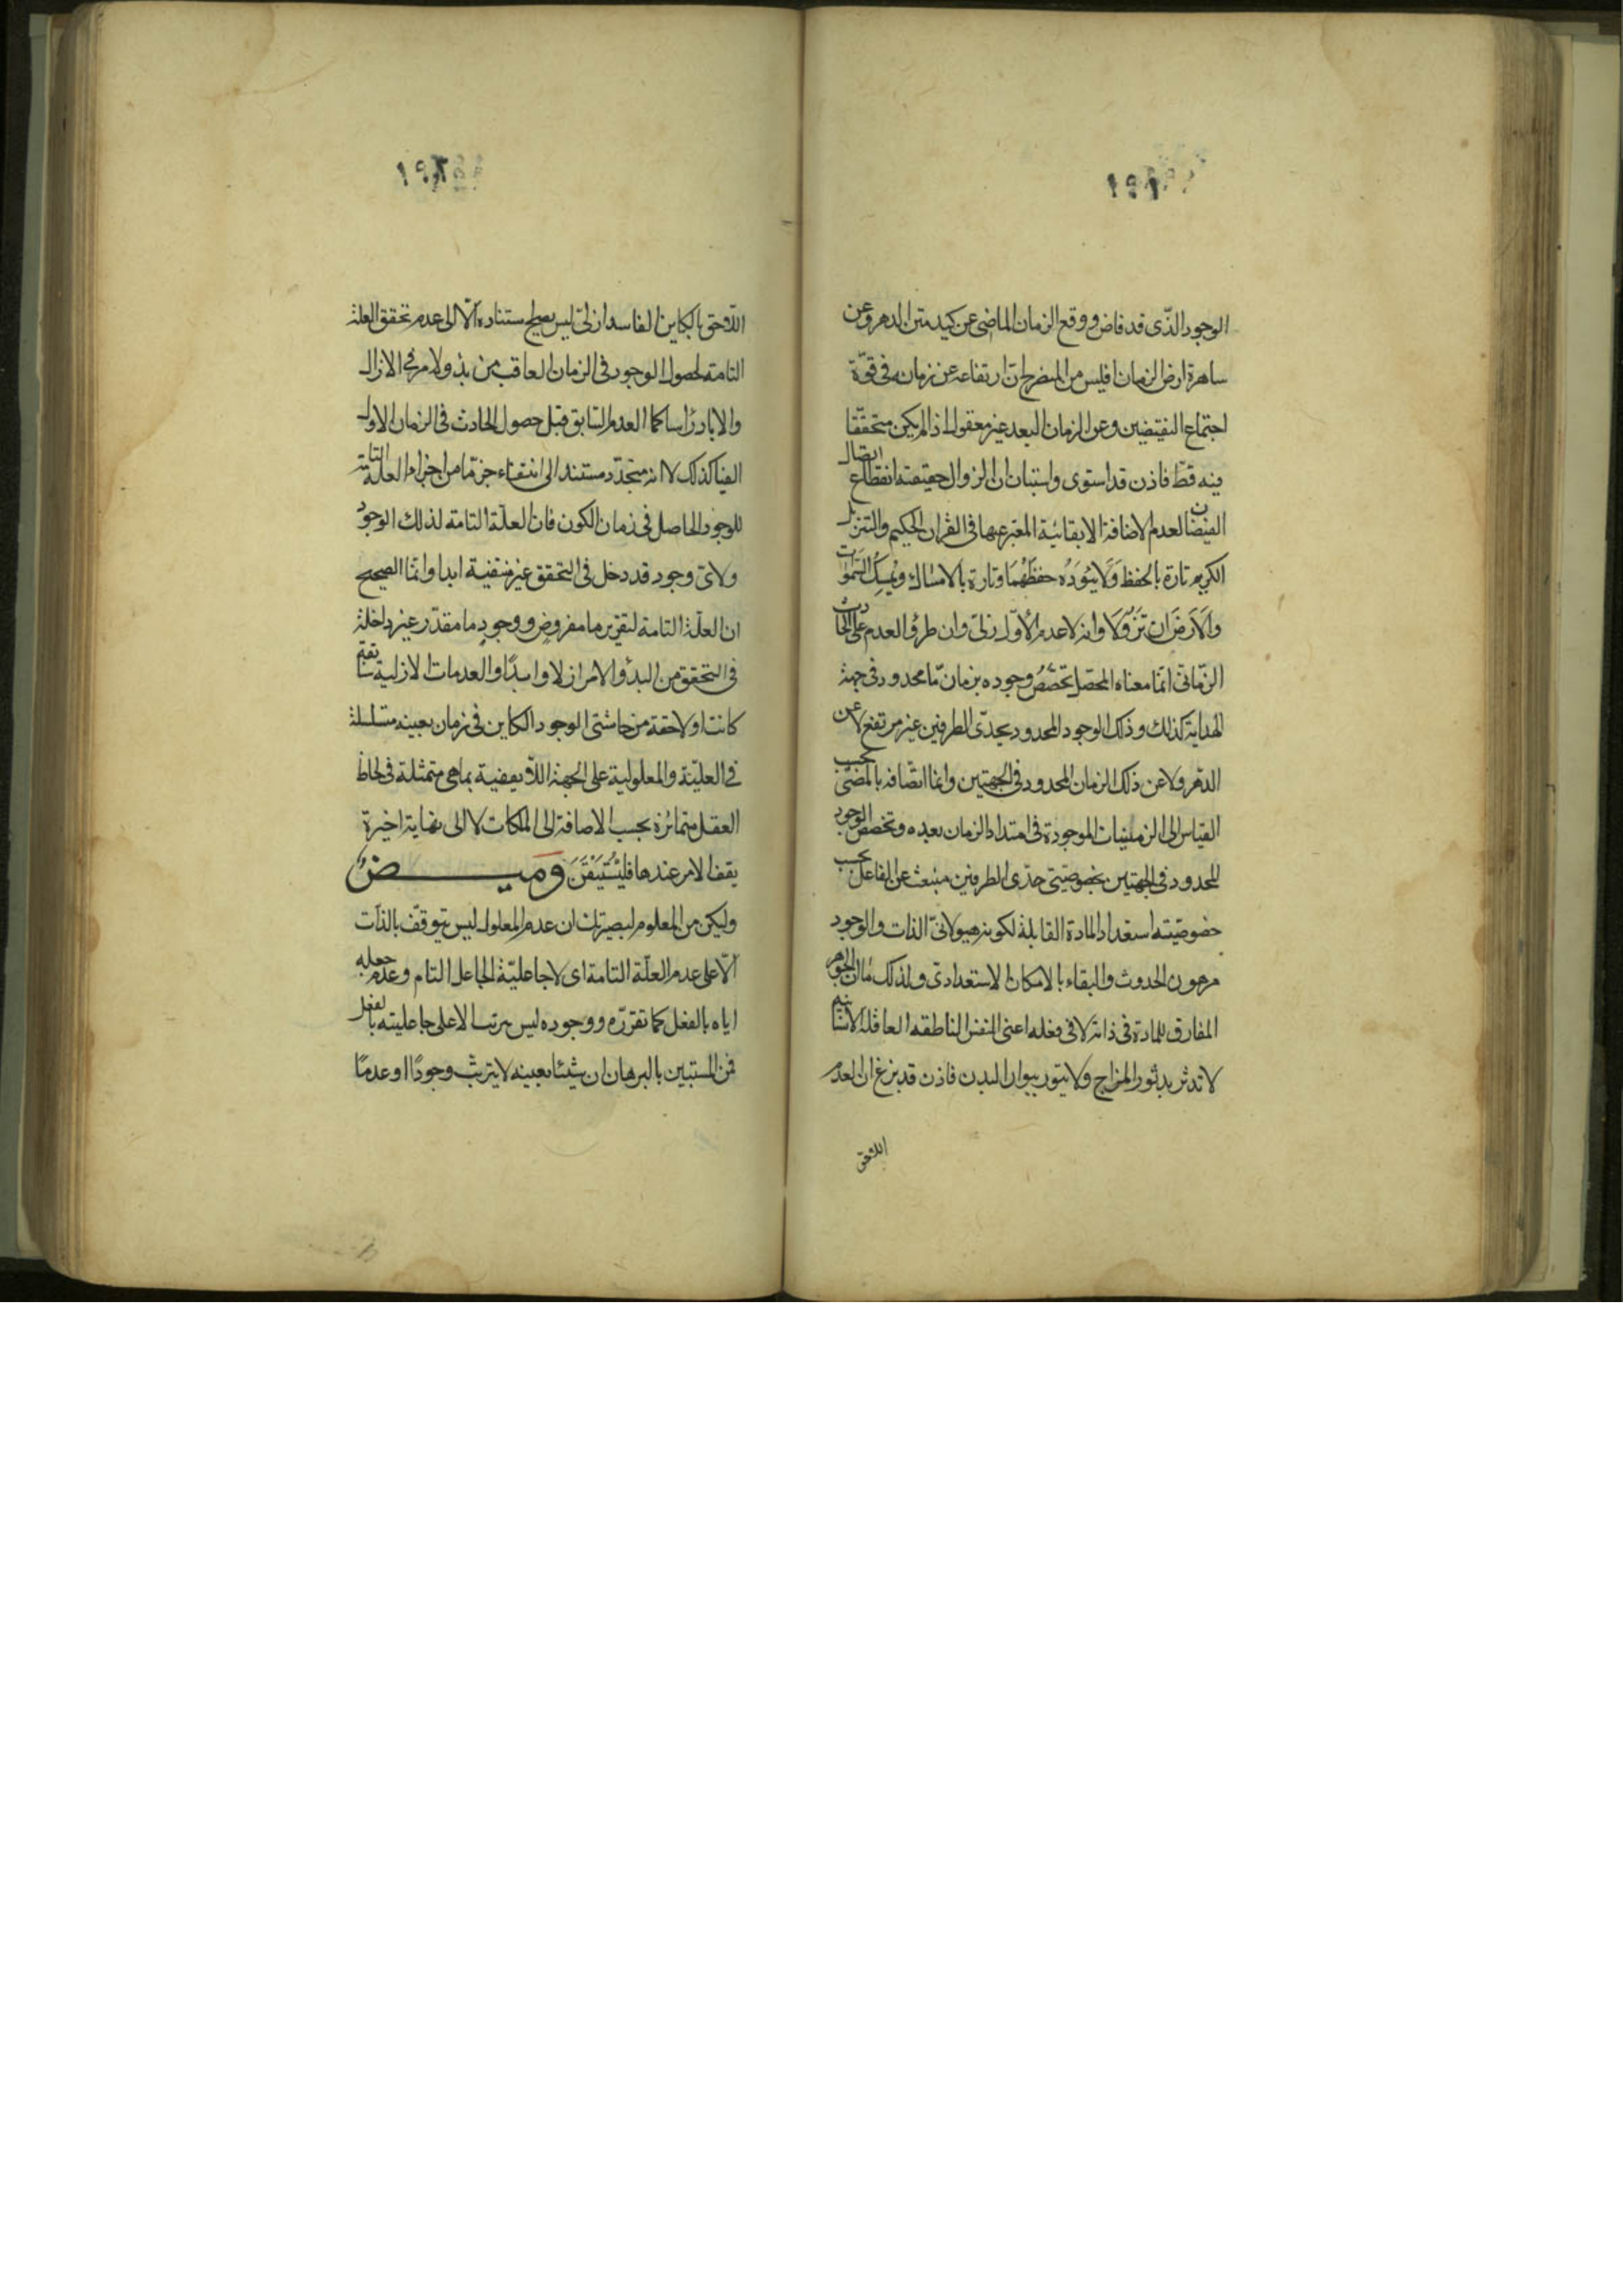 الوجود الذّى قد فاض ووقع الزمان الماضى عن كبد متن الدهر وعن
ساهرة ارض الزمان افليس من المنصرحات ارتفاعه عن زمانه فى قوّة
اجتماع النقيضين وعن الزمان البعد غير معقول اذ لم يكن متحققا
فيه قطّ فاذن قد استوى واستبان ان الزوال حقيقته انقطاع اتصال
الفيضان لعدم الاضافة الابقائية المعبّر عنها فى القران الحكيم والتنزيل
الكريم تارة بالحفظ وَلَا يَئُودُه حفظُهُمَا وتارة بالامساك ويُمسِكُ السَّمٰوات
والاَرَضَ ان تَزُولَا وانه لا عدم الأوّل ازلىّ وان طرؤ العدم على الحادث
الزمانى انما معناه المحصّل تخصّص وجوده بزمان مّا محدود فى جهة
النهاية كذلك وذلك الوجود المحدود بحدّى الطرفين غير مرتفع لا عن
الدهر ولا عن ذلك الزمان المحدود فى الجهتين وانما اتّصافه بالمضىّ بحسب
القياس الى الزمنيات الموجودة فى امتداد الزمان بعده وتخصّص الوجود
المحدود فى الجهتين بخصوصيتى حدّى الطرفين منبعث عن الفاعل بحسب
خصوصيّته استعداد المادة القابلة لكونه هيولانىّ الذات والوجود
مرهون الحدوث والبقاء بالامكان الاستعدادىّ ولذلك كان الجوهر
المفارق للمادة فى ذاته لا فى فعله اعنى النفس الناطقه العاقلة الانسانية
لا تدثر بدثور المزاج ولا يتور ببوار البدن فاذن قد بزغ ان العدم
اللاحق
اللاحق بالكاين الفاسد ازلىّ ليس يصحّ استناده الّا الى عدم تحقق العلة
التامة لحصول الوجود فى الزمان العاقب من بدو الامر فى الازال
والاباد راسا كما العدم السابق قبل حصول الحادث فى الزمان الاول
ايضا كذلك لا انه متجدّد مستند الى انتفاء جزء مّا من اجزاء العلة التامة
للوجود الحاصل فى زمان الكون فان العلّة التامة لذلك الوجود
ولاىّ وجود قد دخل فى التحقق غير منتفية ابدا وانما الصحيح
ان العلّة التامة لتقرر ما مفروض ووجودٍ ما مقدّر غير داخلة
فى التحقق من البدؤ الامر ازلا وابدًا والعدمات الازلية سابقة
كانت او لاحقة من حاشيتى الوجود الكاين فى زمان بعينه متسلسلة
فى العليّة والمعلولية على الجهة اللا يقفية بما هى متمثلة فى لحاظ
العقل متمائزة بحسب الاضافة الى الملكات لا الى نهاية اخيرة
يقف الامر عندها فليُسْتَيْقَنَ وَميــــــضٌ
وليكن من المعلوم لبصيرتك ان عدم المعلول ليس يتوقّف بالذات
الّا على عدم العلّة التامة اى لا جاعليّة الجاعل التام وعدم جعله
اياه بالفعل كما تقرّره ووجوده ليس مرتبا الا على جاعليته بالفعل
فمن المستبين بالبرهان ان شيئا بعينه لا يترتّب وجودًا او عدمًا